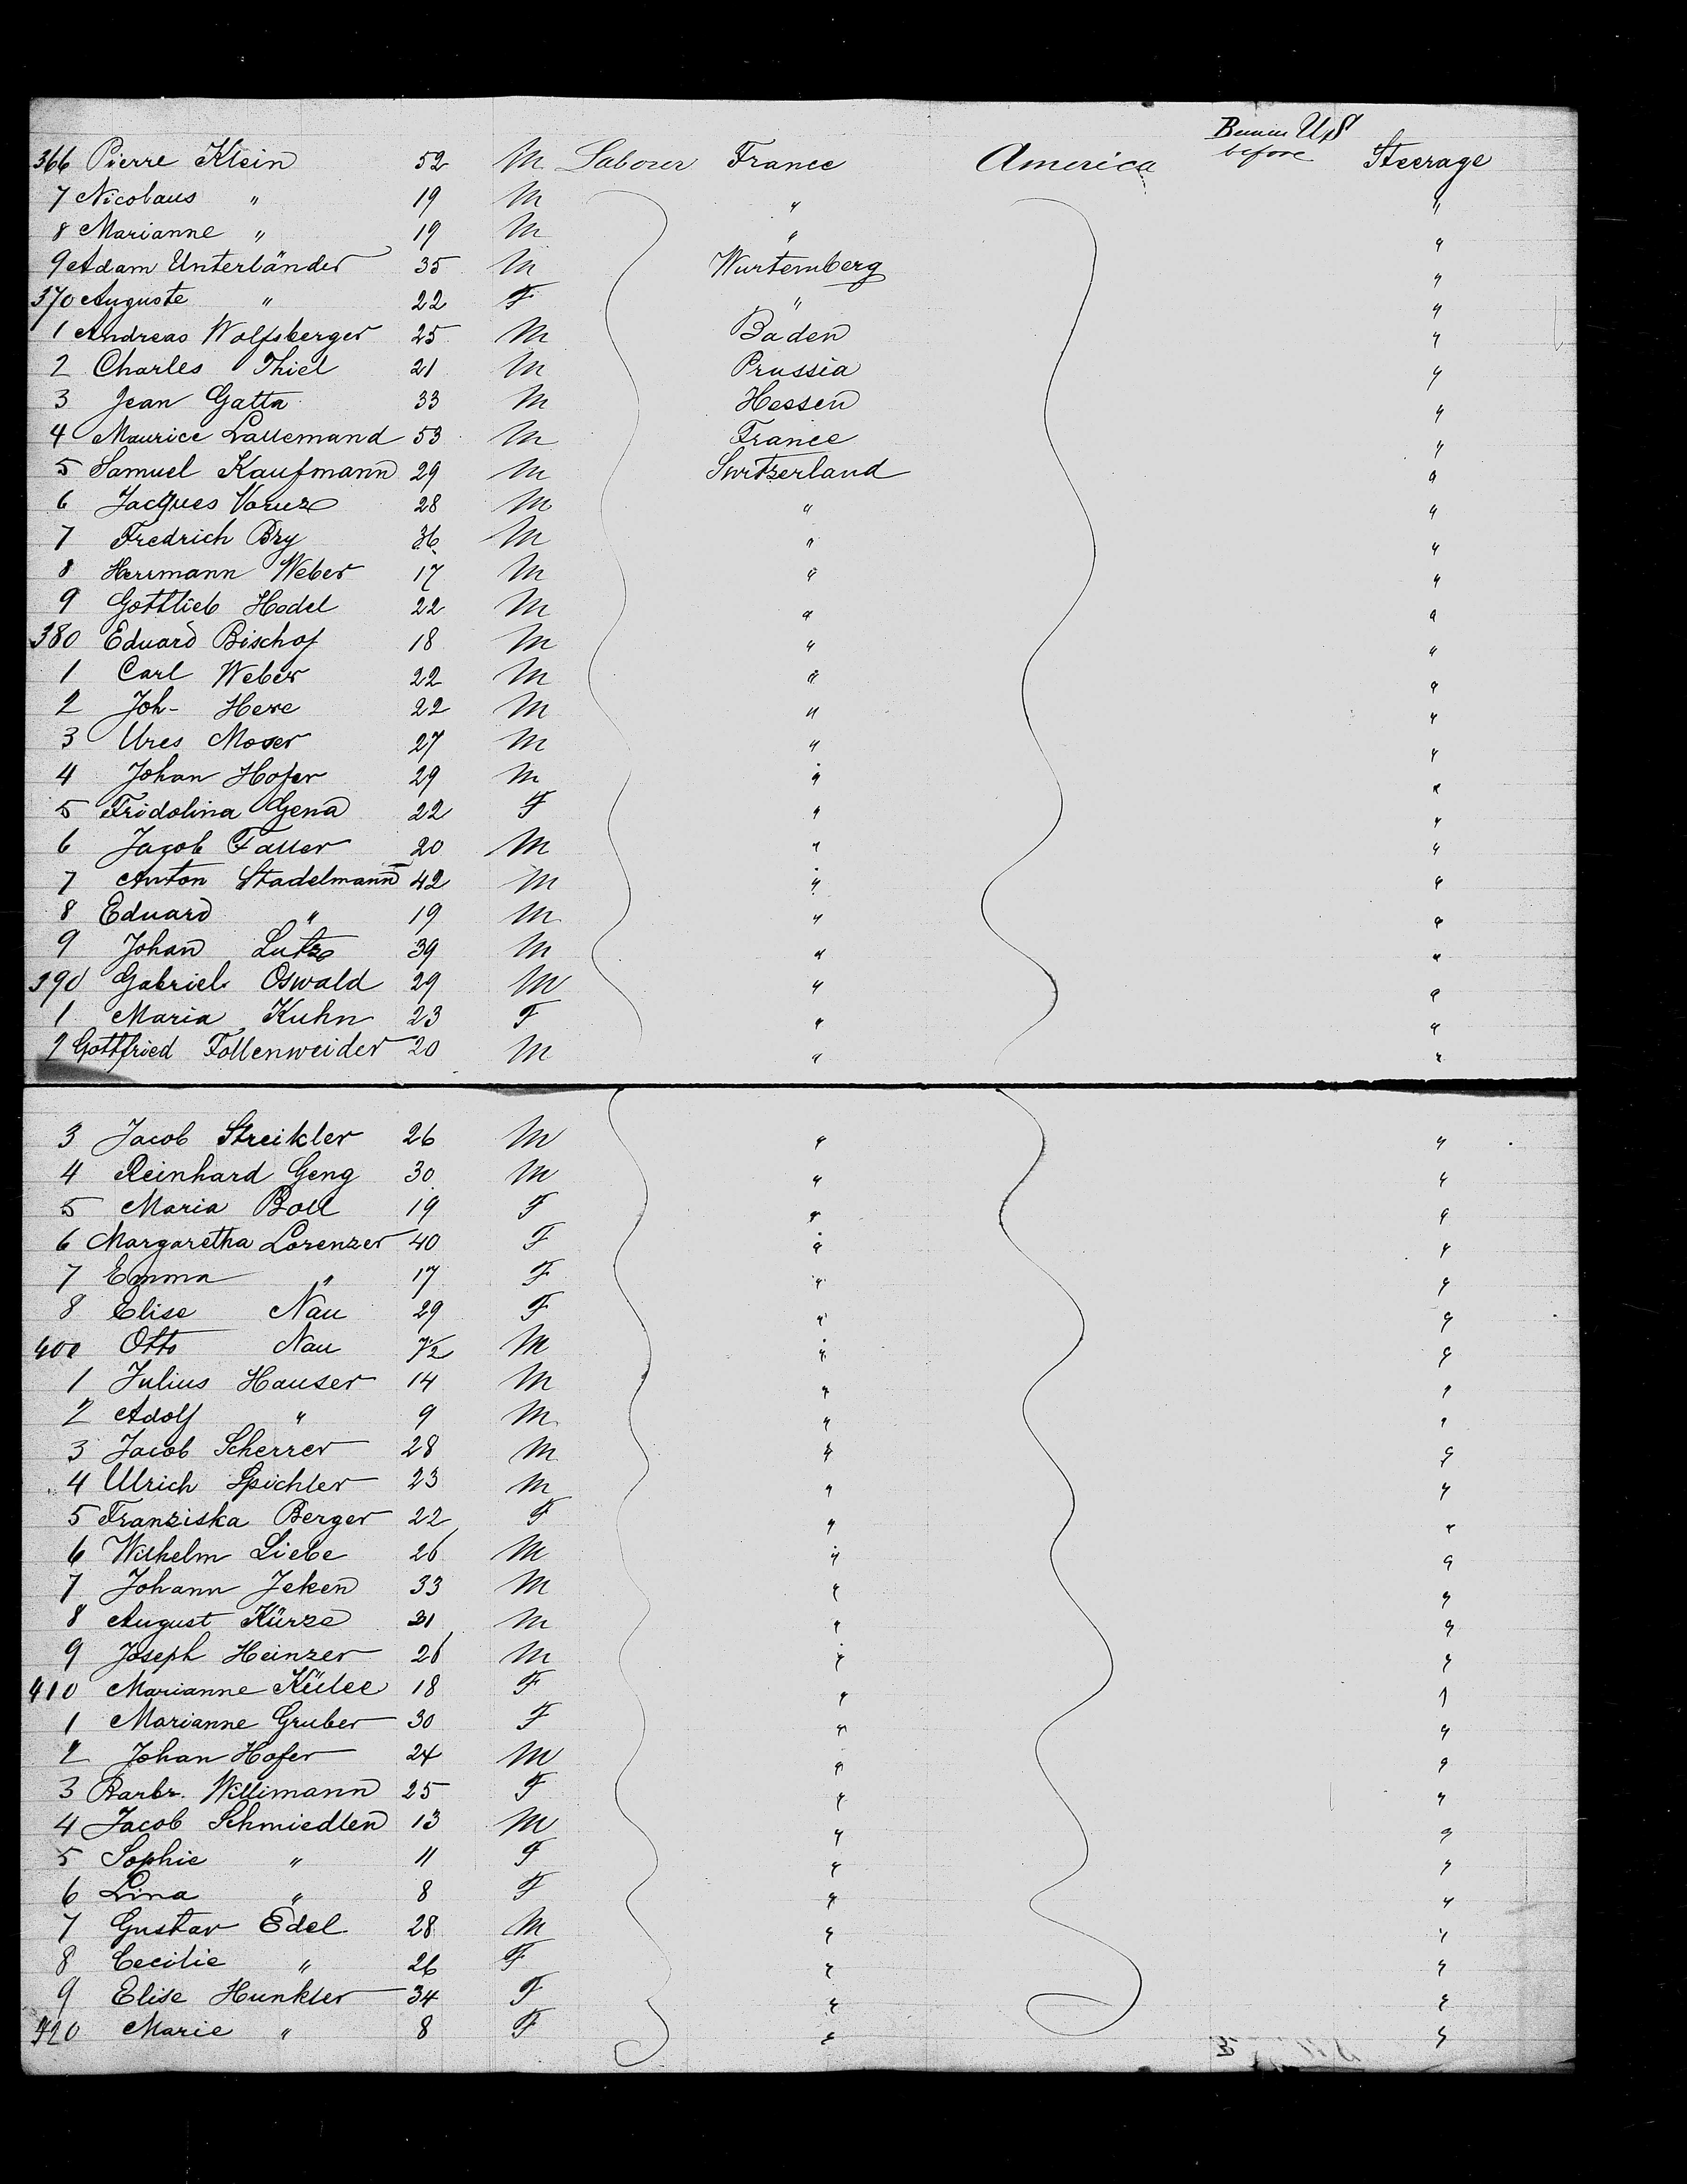 366 Pierre Klein 52 M Labourer France America Been in US before Steerage
7 Nicolaus " 19 M " "
8 Marianne " 19 M " "
9 Adam Unterländer 35 M Wurtemberg "
370 Auguste " 22 F " "
1 Andreas Wolfsberger 25 M Baden "
2 Charles Thiel 21 M Prussia "
3 Jean Gatta 33 M Hessen "
4 Maurice Lallemand 53 M France "
5 Samuel Kaufmann 29 M Switzerland "
6 Jacques Voruz 28 M " "
7 Fredrich Bry 36 M " "
8 Herrmann Weber 17 M " "
9 Gottlieb Hodel 22 M " "
380 Eduard Bischof 18 M " "
1 Carl Weber 22 M " "
2 Joh- 22 M " "
3 Ures Moser 27 M " "
4 Johan Hofer 29 M " "
5 Fridolina Gena 22 F " "
6 Jacob Faller 20 M " "
7 Anton Stadelmann 42 M " "
8 Eduard " 19 M " "
9 Johan Lutz 39 M " "
390 Gabriel Oswald 29 M " "
1 Maria Kuhn 23 F " "
2 Gottfried Follenweider 20 M " "
3 Jacob Streikler 26 M " "
4 Reinhard Geng 30 M " "
5 Maria Boll 19 F " "
6 Margaretha Lorenzer 40 F " "
7 Emma " 17 F " "
8 Elise Nau 29 F " "
400 Otto Nau 7/2 M " "
1 Julius Hauser 14 M " "
2 Adolf " 9 M " "
3 Jacob Scherrer 28 M " "
4 Ulrich Spichler 23 M " "
5 Franziska Berger 22 F " "
6 Wilhelm Liebe 26 M " "
7 Johann Jeken 33 M " "
8 August Kürze 31 M " "
9 Joseph Heinzer 26 M " "
410 Marianne 18 F " "
1 Marianne Gruber 30 F " "
2 Johan Hofer 24 M " "
3 Barbr. Willimann 25 F " "
4 Jacob Schmiedlen 13 M " "
5 Sophie " 11 F " "
6 Lina " 8 F " "
7 Gustav Edel 28 M " "
8 Cecilie " 26 F " "
9 Elise Hunkler 34 F " "
420 Marie " 8 F " "